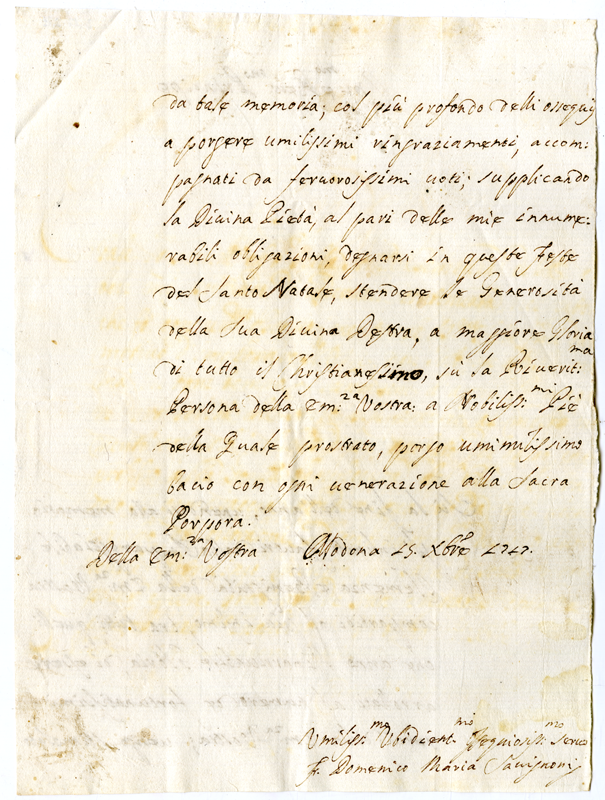 da tale memoria, col più profondo delli ossequij
a porgere umilissimi ringraziamenti, accom:
pagnati da feruorosissimi uoti; supplicando
la Diuina Pietà, al pari delle mie innume:
rabili obligazioni, degnarsi in queste Feste
del Santo Natale, stendere le Generosità
della Sua Diuina Destra, a maggiore Gloria
di tutto il Christianesimo, sù la Riuerit:ma
Persona della Em:za Vostra: a Nobiliss:mi Piè
della Quale prostrato, porgo umimilissimo
bacio con ogni uenerazione alla Sacra
Porpora.
Della Em:za Vostra Modona 15. Xbre 1717.
Umiliss:mo Ubidient:mo Ossequiosiss:mo Seruo
F. Domenico Maria Sauignoni